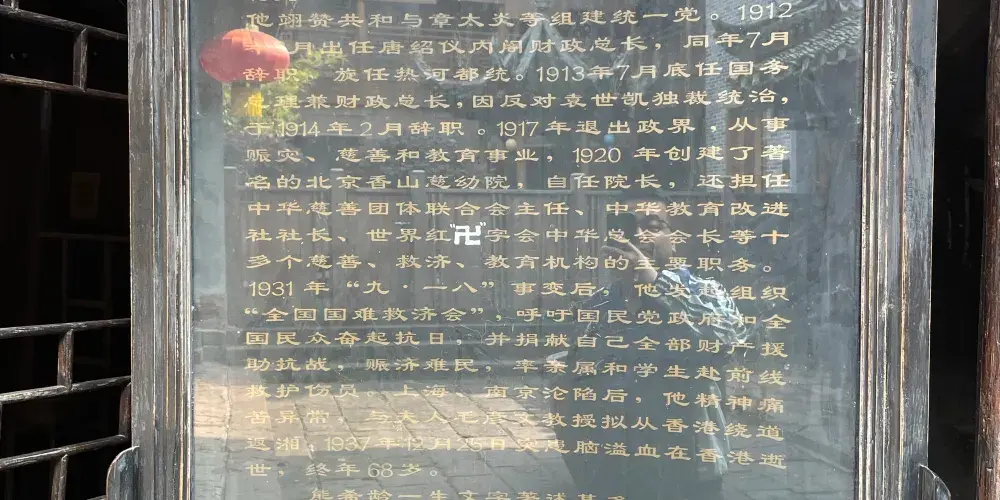 他翊赞共和与章太炎等组建统一党。1912
月出任唐绍仪内阁财政总长，同年7月
辞职、旋任热河都统。1913年7月底任国务
总理兼财政总长，因反对袁世凯独裁统治，
于1914年2月辞职。1917年退出政界，从事
赈灾、慈善和教育事业，1920年创建了著
名的北京香山慈幼院，自任院长，还担任
中华慈善团体联合会主任、中华教育改进
社社长、世界红“卍”字会中华总会会长等十
多个慈善、救济、教育机构的主要职务。
1931年“九·一八”事变后，他发起组织
“全国国难救济会”，呼吁国民党政府和全
国民众奋起抗日，并捐献自己全部财产援
助抗战，赈济难民，率亲属和学生赴前线
救护伤员。上海、南京沦陷后，他精神痛
苦异常，与夫人毛彦文教授拟从香港绕道
返湘，1937年12月25日突患脑溢血在香港逝
世，终年68岁。
熊希龄一生文字著述甚多